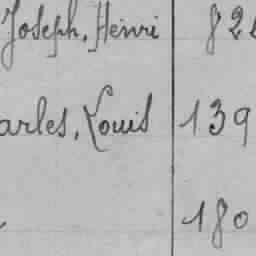 Joseph, Henri 82
arles, Louis 139
180